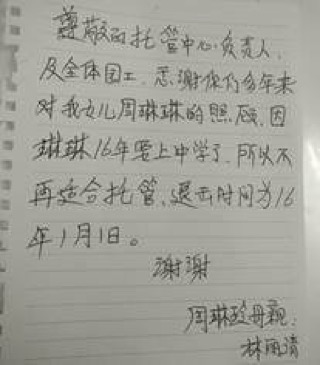 尊敬的托管中心负责人、
及全体园工、感谢你们多年来
对我女儿周琳琳的照顾、因
琳琳16年要上中学了、所以不
再适合托管、退出时间为16
年1月1日。
谢谢
周琳玲母亲:
林雨清